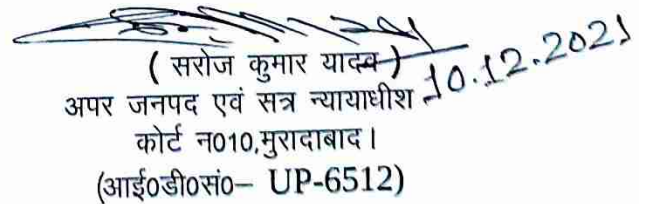 ( सरोज कुमार यादव )
10.12.2021
अपर जनपद एवं सत्र न्यायाधीश
कोर्ट न010,मुरादाबाद।
(आई०डी०सं०– UP-6512)